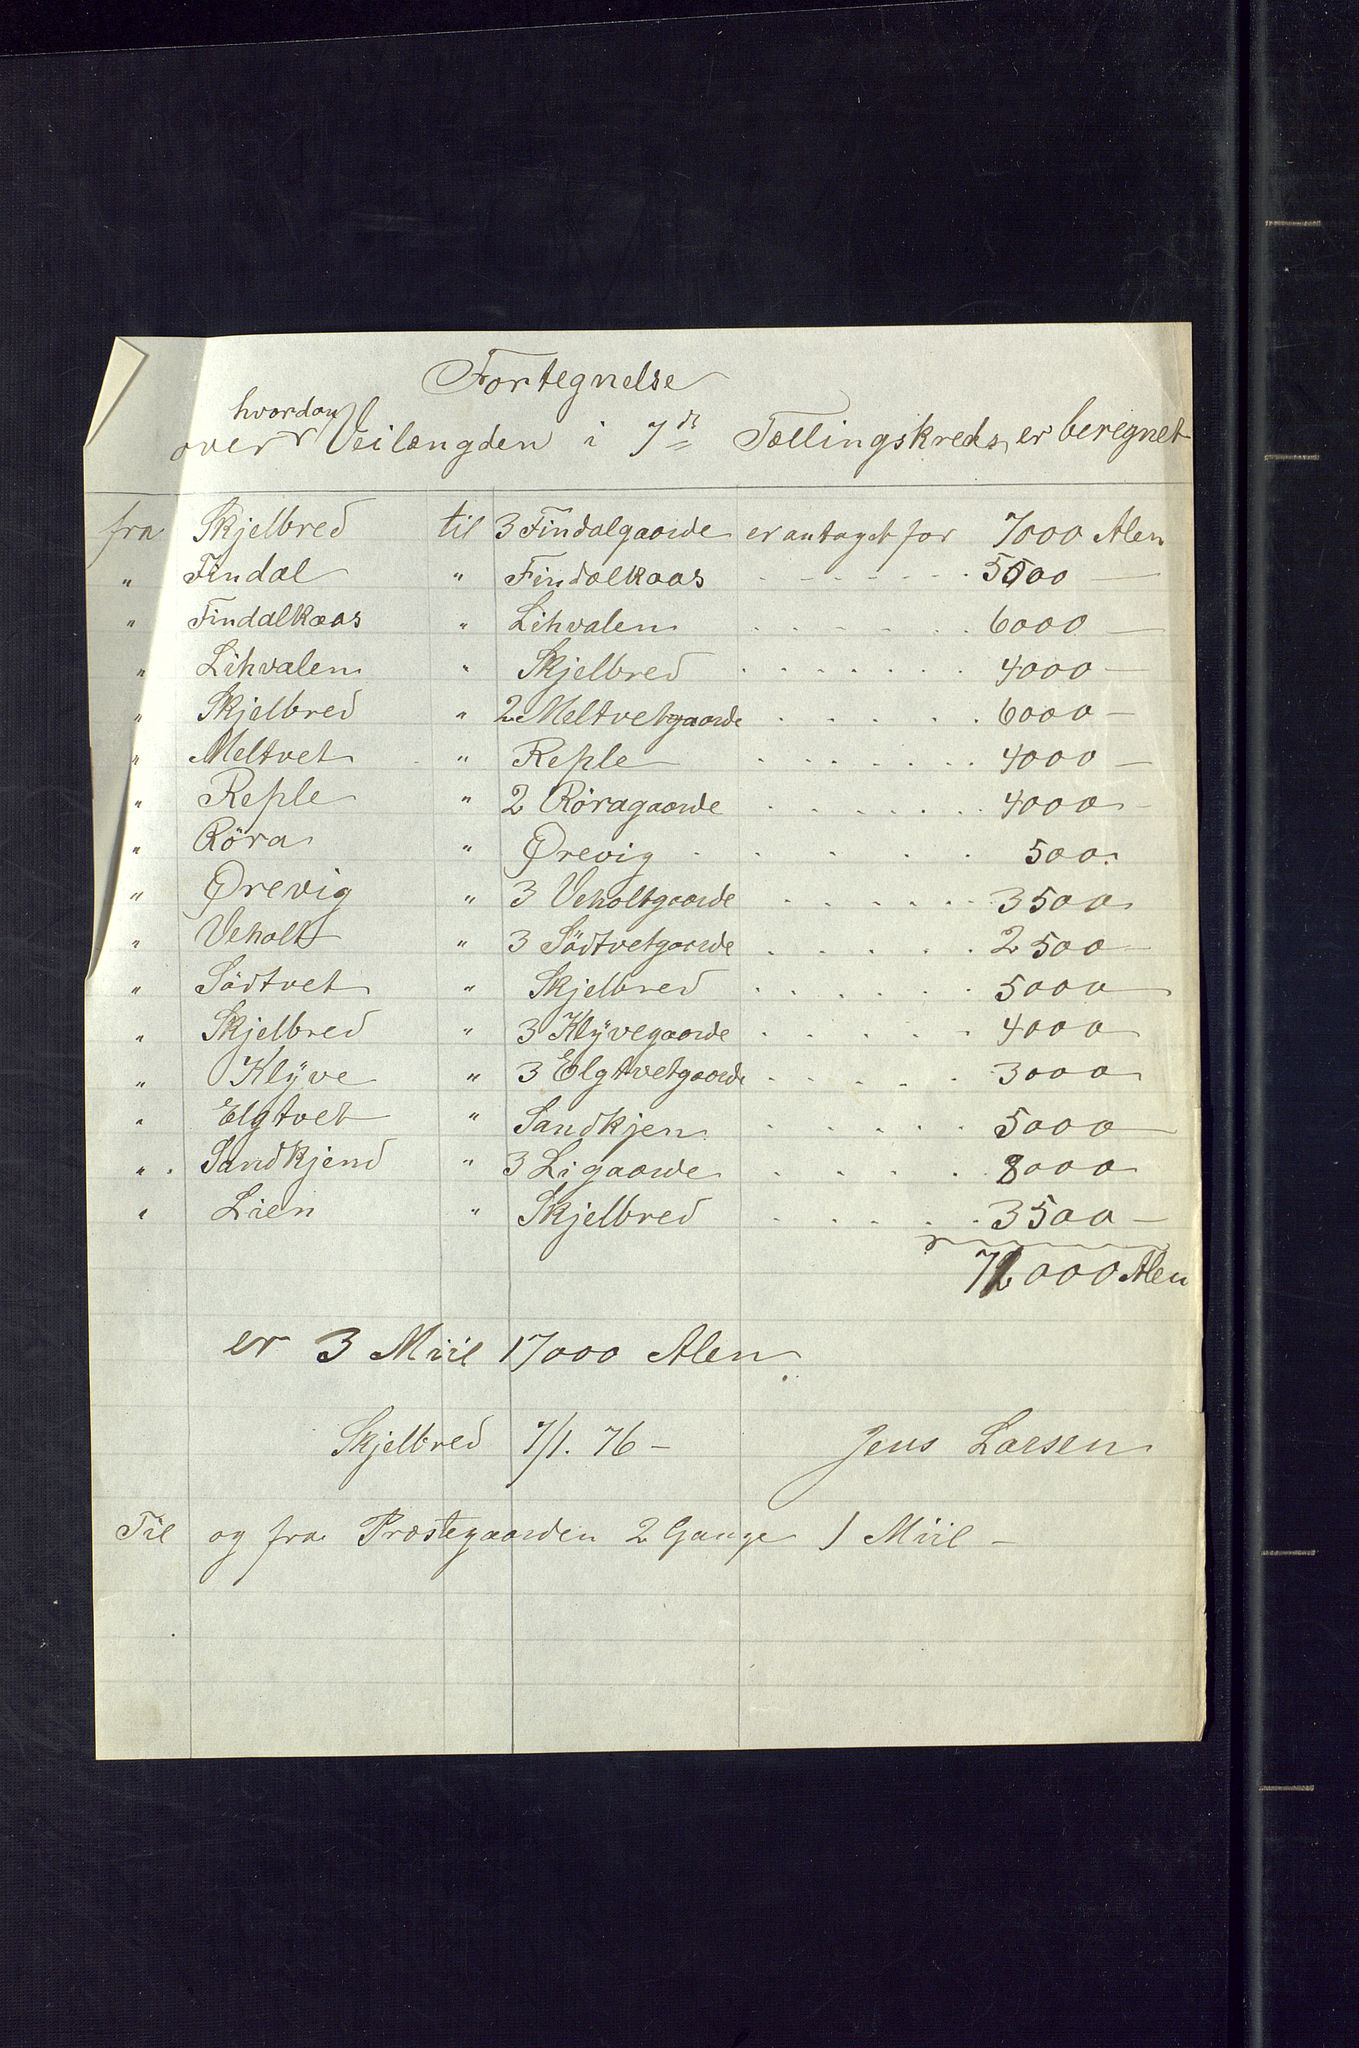 Fortegnelse
over hvordan Veilængden i 7de Tællingskreds er beregnet
fra Skjelbred til 3 Findalgaarde er antaget for 7000 Alen
" Findal " Findalkaas . . . . . . . 5500 —
" Findalkaas " Lihvalen . . . . . . . 6000 —
" Lihvalen " Skjelbred . . . . . . . 4000 —
" Skjelbred " 2 Meltvetgaarde . . . . . 6000 —
" Meltvet " Reple . . . . . . . 4000 —
" Reple " 2 Röragaarde . . . . . . 4000 —
" Röra " Ørevig . . . . . . 500.
" Ørevig " 3 Veholtgaarde . . . . . . 3500
" Veholt " 3 Södtvetgaarde . . . . . 2500
" Södtvet " Skjelbred . . . . . . 5000
" Skjelbred " 3 Klÿvegaarde . . . . . 4000
" Klÿve " 3 Elgtvetgaarde . . . . . 3000
" Elgtvet " Sandkjen . . . . . . 5000
" Sandkjend " 3 Ligaarde . . . . . 8000
" Lien " Skjelbred . . . . . 3500 —
72000 Alen
er 3 Miil 17000 Alen.
Skjelbred 7/1. 76 — Jens Larsen
Til og fra Præstegaarden 2 Gange 1 Miil —